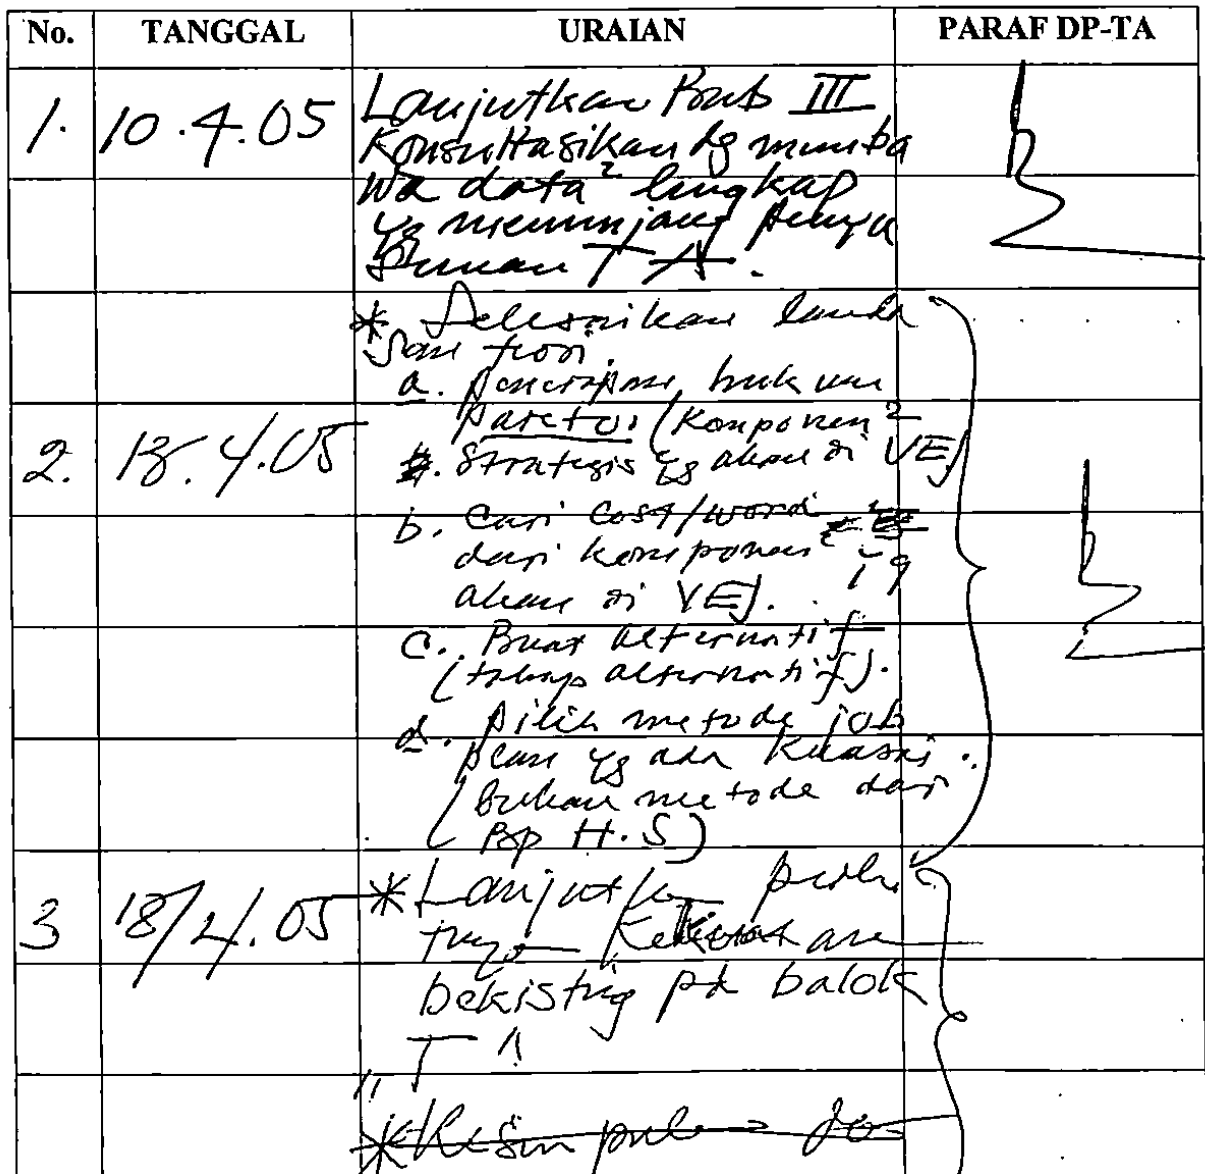 No. TANGGAL URAIAN PARAF DP-TA
1. 10.4.05 Lanjutkan Bab III
Konsultasikan dg memba
wa data² lengkap
yg menunjang penyu
sunan TA.
* Selesaikan landa
san teori.
a. penerapan hukum
pareto (komponen²
2. 4.05 strategis yg akan di VE)
b. Cari cost/worth
dari komponen² yg
akan di VE).
c. Buat alternatif
(tahap alternatif).
d. pilih metode job
plan yg ada
(bukan metode dari
Bp H.S)
3 18/4.05 * Lanjutkan
bekisting pd balok
"T"
* Kesimpulan